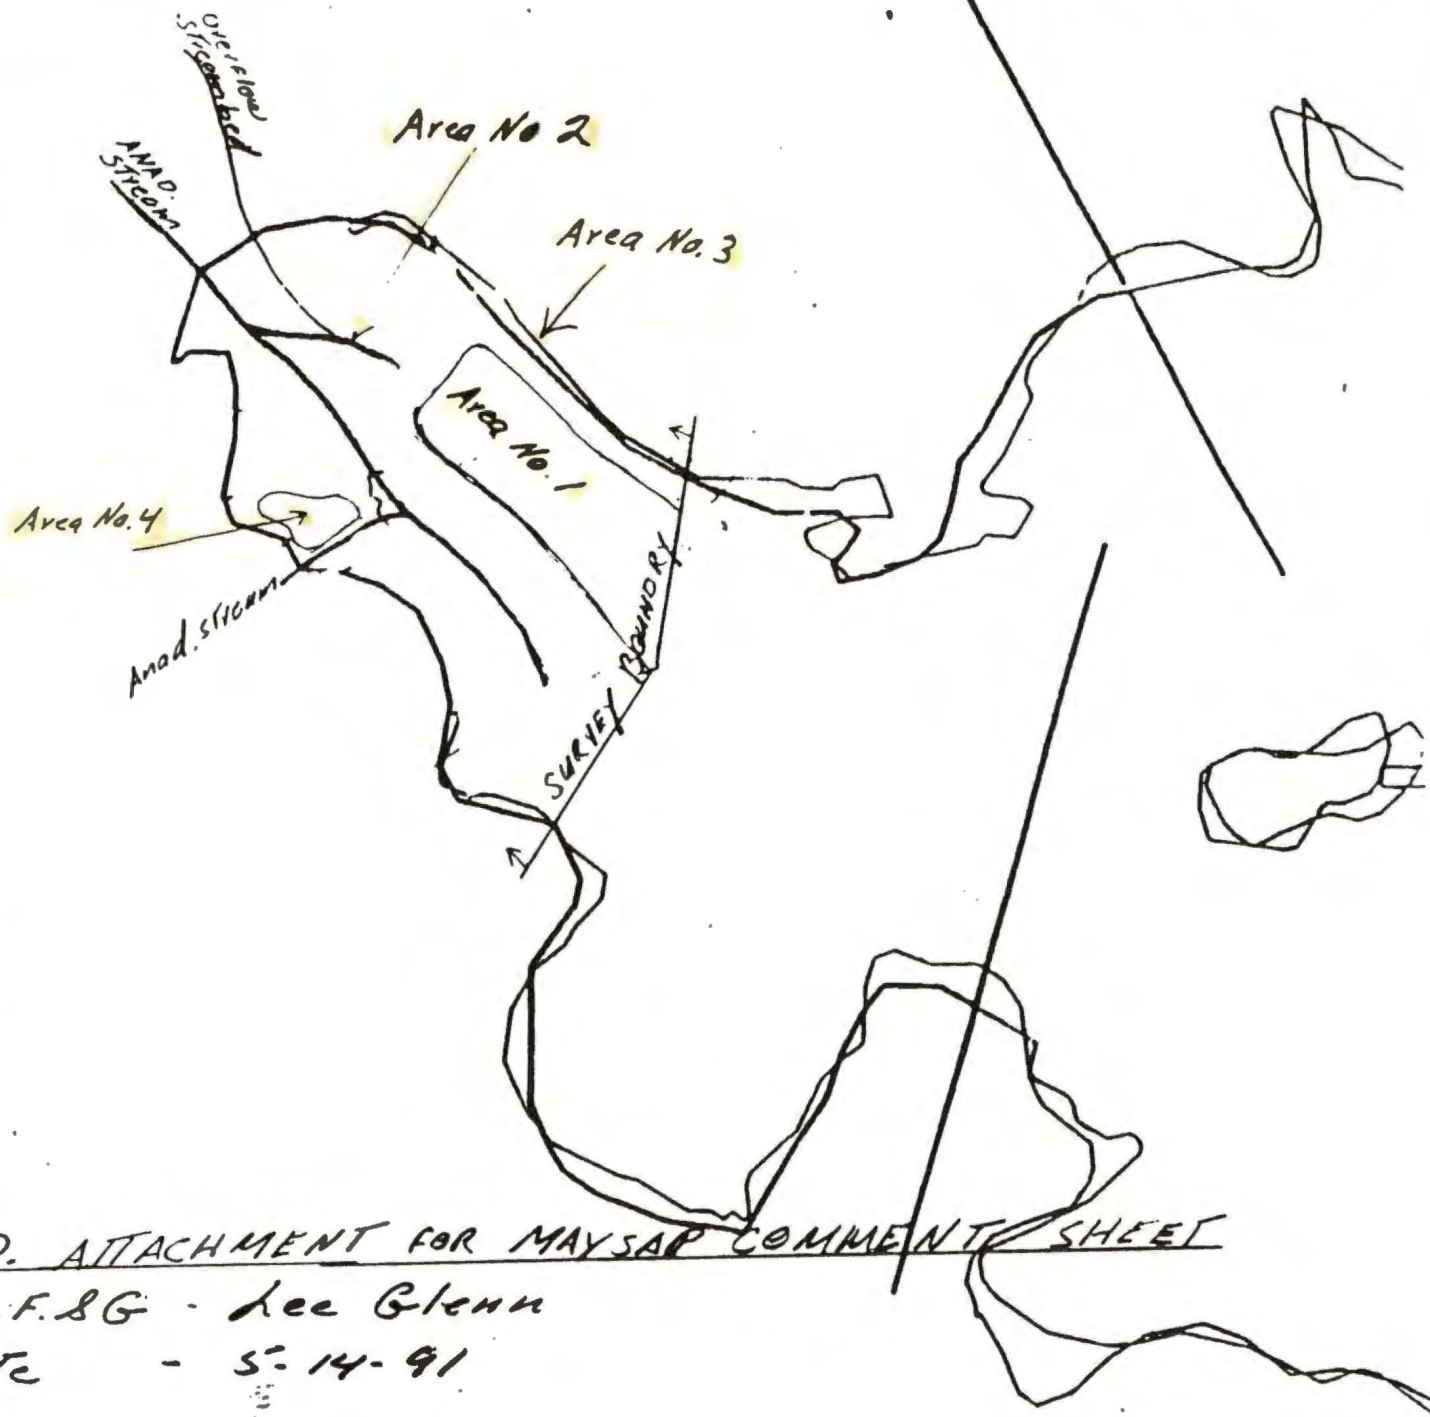 overflow
streambed
ANAD.
stream
Area No 2
Area No. 3
Area No. 1
Area No. 4
Anad. stream
SURVEY BOUNDRY
D. ATTACHMENT FOR MAYSAP COMMENT SHEET
.F.&G - Lee Glenn
te - 5-14-91